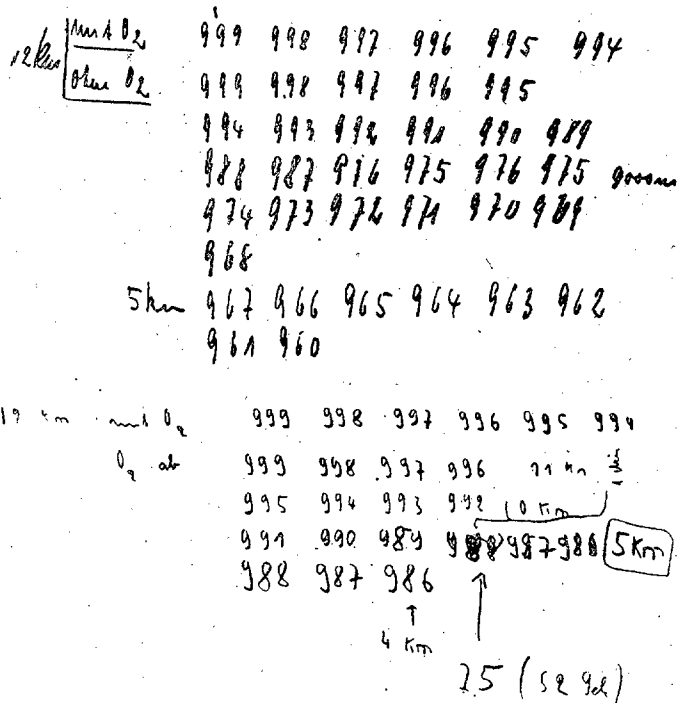 12 km mit O2 999 998 997 996 995 994
ohne O2 999 998 997 996 995
994 993 992 991 990 989
988 987 976 975 976 975 9000m
974 973 972 971 970 969
968
5km 967 966 965 964 963 962
961 960
12 km mit O2 999 998 997 996 995 994
O2 ab 999 998 997 996 11 km
995 994 993 992 10 Km
991 990 989 988 987 986 5Km
988 987 986
4 Km